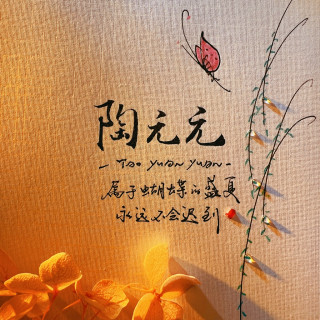 陶元元
- Tao yuan yuan -
属于蝴蝶的盛夏
永远不会迟到